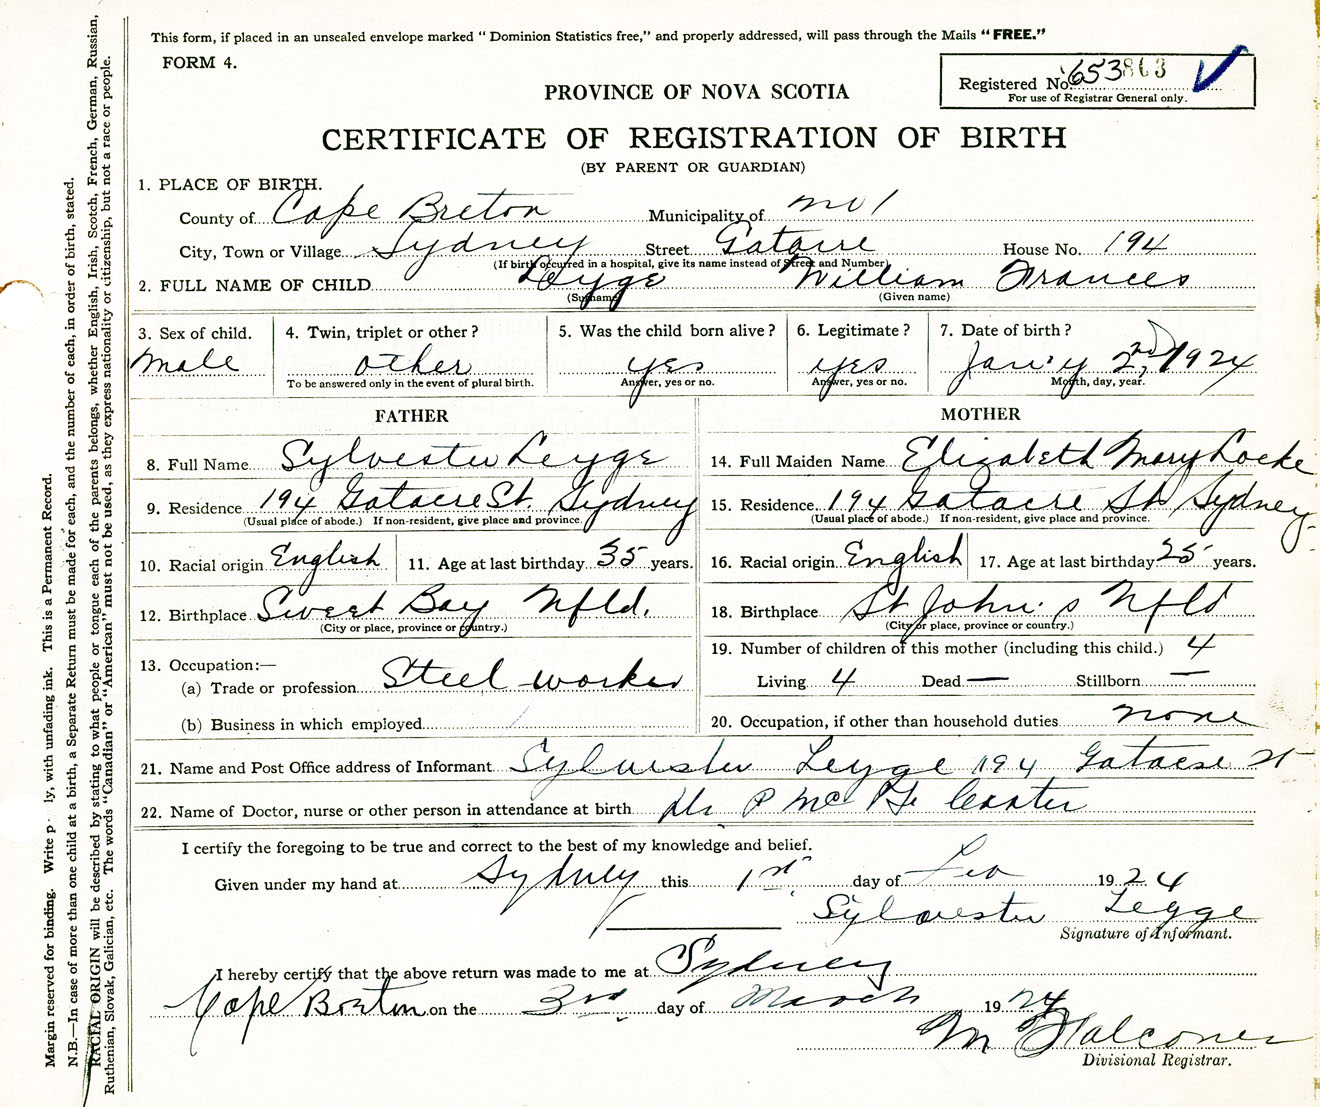 This form, if placed in an unsealed envelope marked "Dominion Statistics free," and properly addressed, will pass through the Mails "FREE."
FORM 4.
Registered No. 653863
For use of Registrar General only.
PROVINCE OF NOVA SCOTIA
CERTIFICATE OF REGISTRATION OF BIRTH
(BY PARENT OR GUARDIAN)
1. PLACE OF BIRTH.
County of Cape Breton Municipality of
City, Town or Village Sydney Street Gatacre House No. 194
(If birth occurred in a hospital, give its name instead of Street and Number)
2. FULL NAME OF CHILD Legge William Frances
(Surname) (Given name)
3. Sex of child. 4. Twin, triplet or other? 5. Was the child born alive? 6. Legitimate? 7. Date of birth?
Male other yes yes Jan'y 2nd, 1924
To be answered only in the event of plural birth. Answer, yes or no. Answer, yes or no. Month, day, year.
FATHER MOTHER
8. Full Name Sylvester Legge 14. Full Maiden Name Elizabeth Mary Locke
9. Residence 194 Gatacre St. Sydney 15. Residence 194 Gatacre St Sydney
(Usual place of abode.) If non-resident, give place and province. (Usual place of abode.) If non-resident, give place and province.
10. Racial origin English 11. Age at last birthday 35 years. 16. Racial origin English 17. Age at last birthday 25 years.
12. Birthplace Sweet Bay Nfld. 18. Birthplace St John's Nfld
(City or place, province or country.) (City or place, province or country.)
13. Occupation:— 19. Number of children of this mother (including this child.) 4
(a) Trade or profession Steel worker Living 4 Dead — Stillborn —
(b) Business in which employed 20. Occupation, if other than household duties none
21. Name and Post Office address of Informant Sylvester Legge 194 Gatacre St
22. Name of Doctor, nurse or other person in attendance at birth Dr. P Mc
I certify the foregoing to be true and correct to the best of my knowledge and belief.
Given under my hand at Sydney this 1st day of Feb 1924
Sylvester Legge
Signature of Informant.
I hereby certify that the above return was made to me at Sydney
Cape Breton on the 3rd day of March 1924
M Falconer
Divisional Registrar.
Margin reserved for binding. Write ly, with unfading ink. This is a Permanent Record.
N.B.—In case of more than one child at a birth, a Separate Return must be made for each, and the number of each, in order of birth, stated.
RACIAL ORIGIN will be described by stating to what people or tongue each of the parents belongs, whether English, Irish, Scotch, French, German, Russian,
Ruthenian, Slovak, Galician, etc. The words "Canadian" or "American" must not be used, as they express nationality or citizenship, but not a race or people.